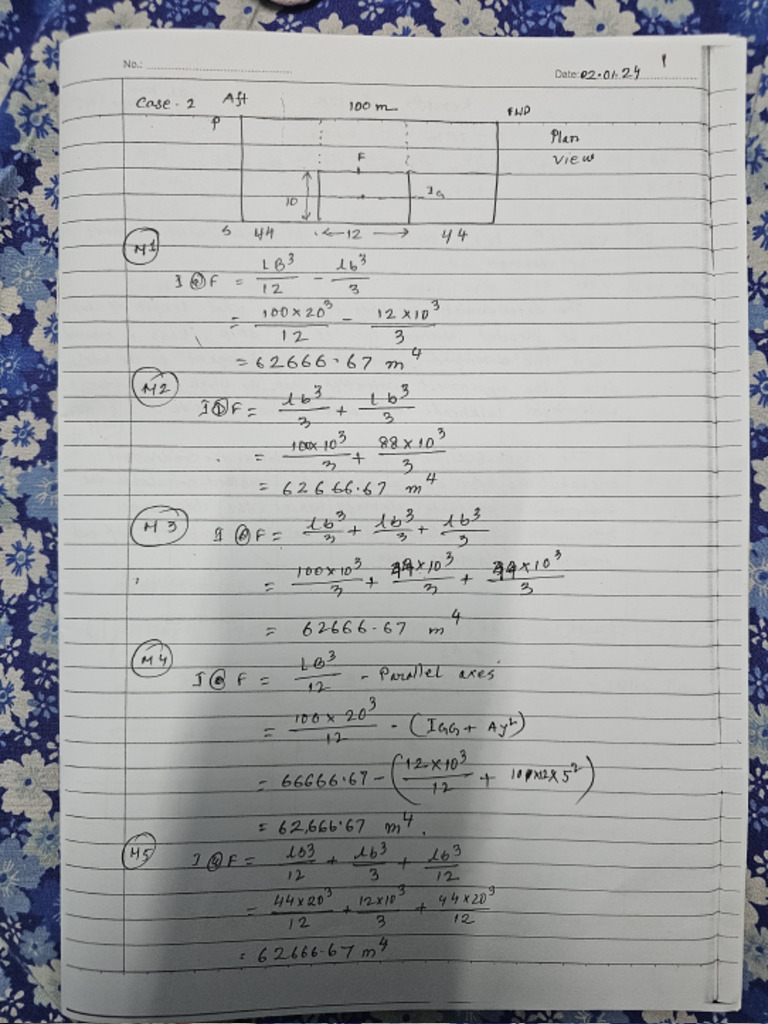 No.:
Date: 02.01.24
1
Case - 2 Aft 100 m FWD
P
Plan
View
F
10 IG
S 44 ←12→ 44
M1
I @ F = LB³/12 - lb³/3
= 100×20³/12 - 12×10³/3
= 62666.67 m⁴
M2
I @ F = lb³/3 + lb³/3
= 100×10³/3 + 88×10³/3
= 62666.67 m⁴
M3
I @ F = lb³/3 + lb³/3 + lb³/3
= 100×10³/3 + 44×10³/3 + 44×10³/3
= 62666.67 m⁴
M4
I @ F = LB³/12 - Parallel axes
= 100×20³/12 - (IGG + Ay²)
= 66666.67 - (12×10³/12 + 10×12×5²)
= 62,666.67 m⁴.
M5
I @ F = lb³/12 + lb³/3 + lb³/12
= 44×20³/12 + 12×10³/3 + 44×20³/12
= 62666.67 m⁴